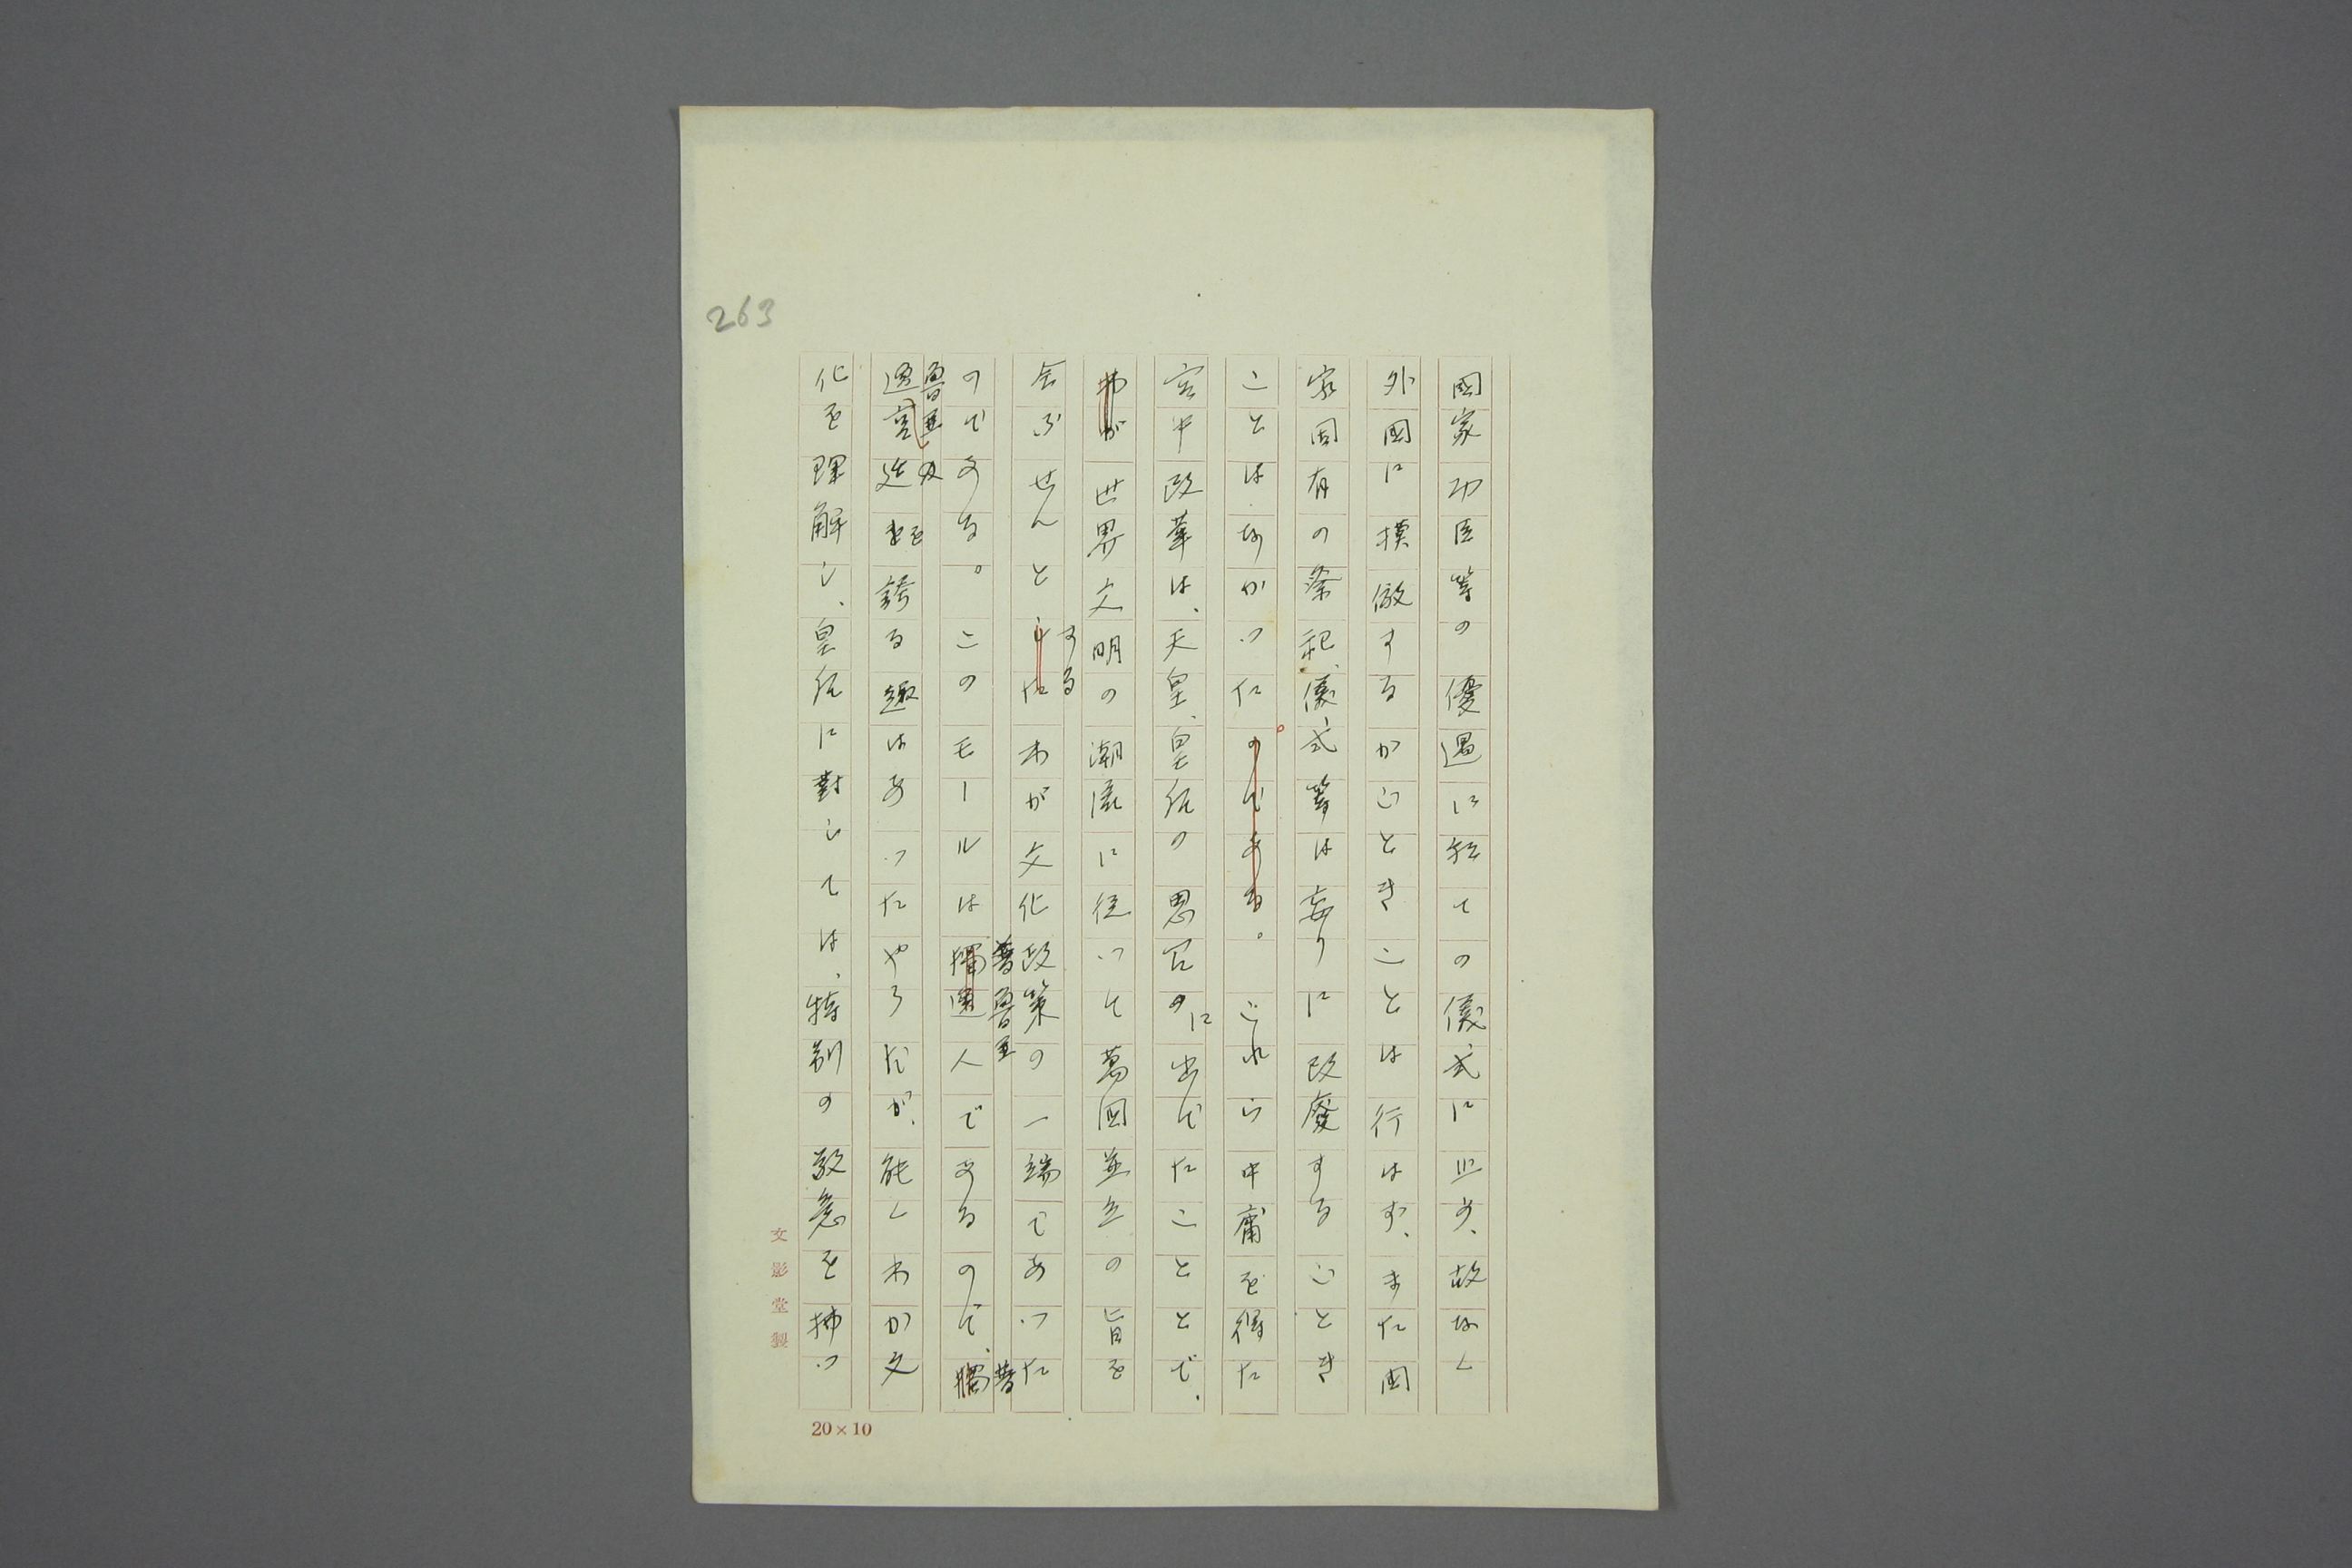 263
國家功臣等の優遇に於ての儀式に止め、故なく
外國に模倣するがごときことは行はず、また国
家固有の祭祀、儀式等は妄りに改廢するごとき
ことはなかった。のである。これら中庸を得た
宮中改革は、天皇、皇后の思召のに出でたことで、
わが世界文明の潮流に従って萬国並立の旨を
会ぶせんとしたするわが文化政策の一端であった
のである。このモールは獨逸普魯亜人であるので、獨普
逸魯亜宮廷を誇る趣はあったやうだが、能くわが文
化を理解し、皇后に對しては、特別の敬意を拂っ
文影堂製
20×10